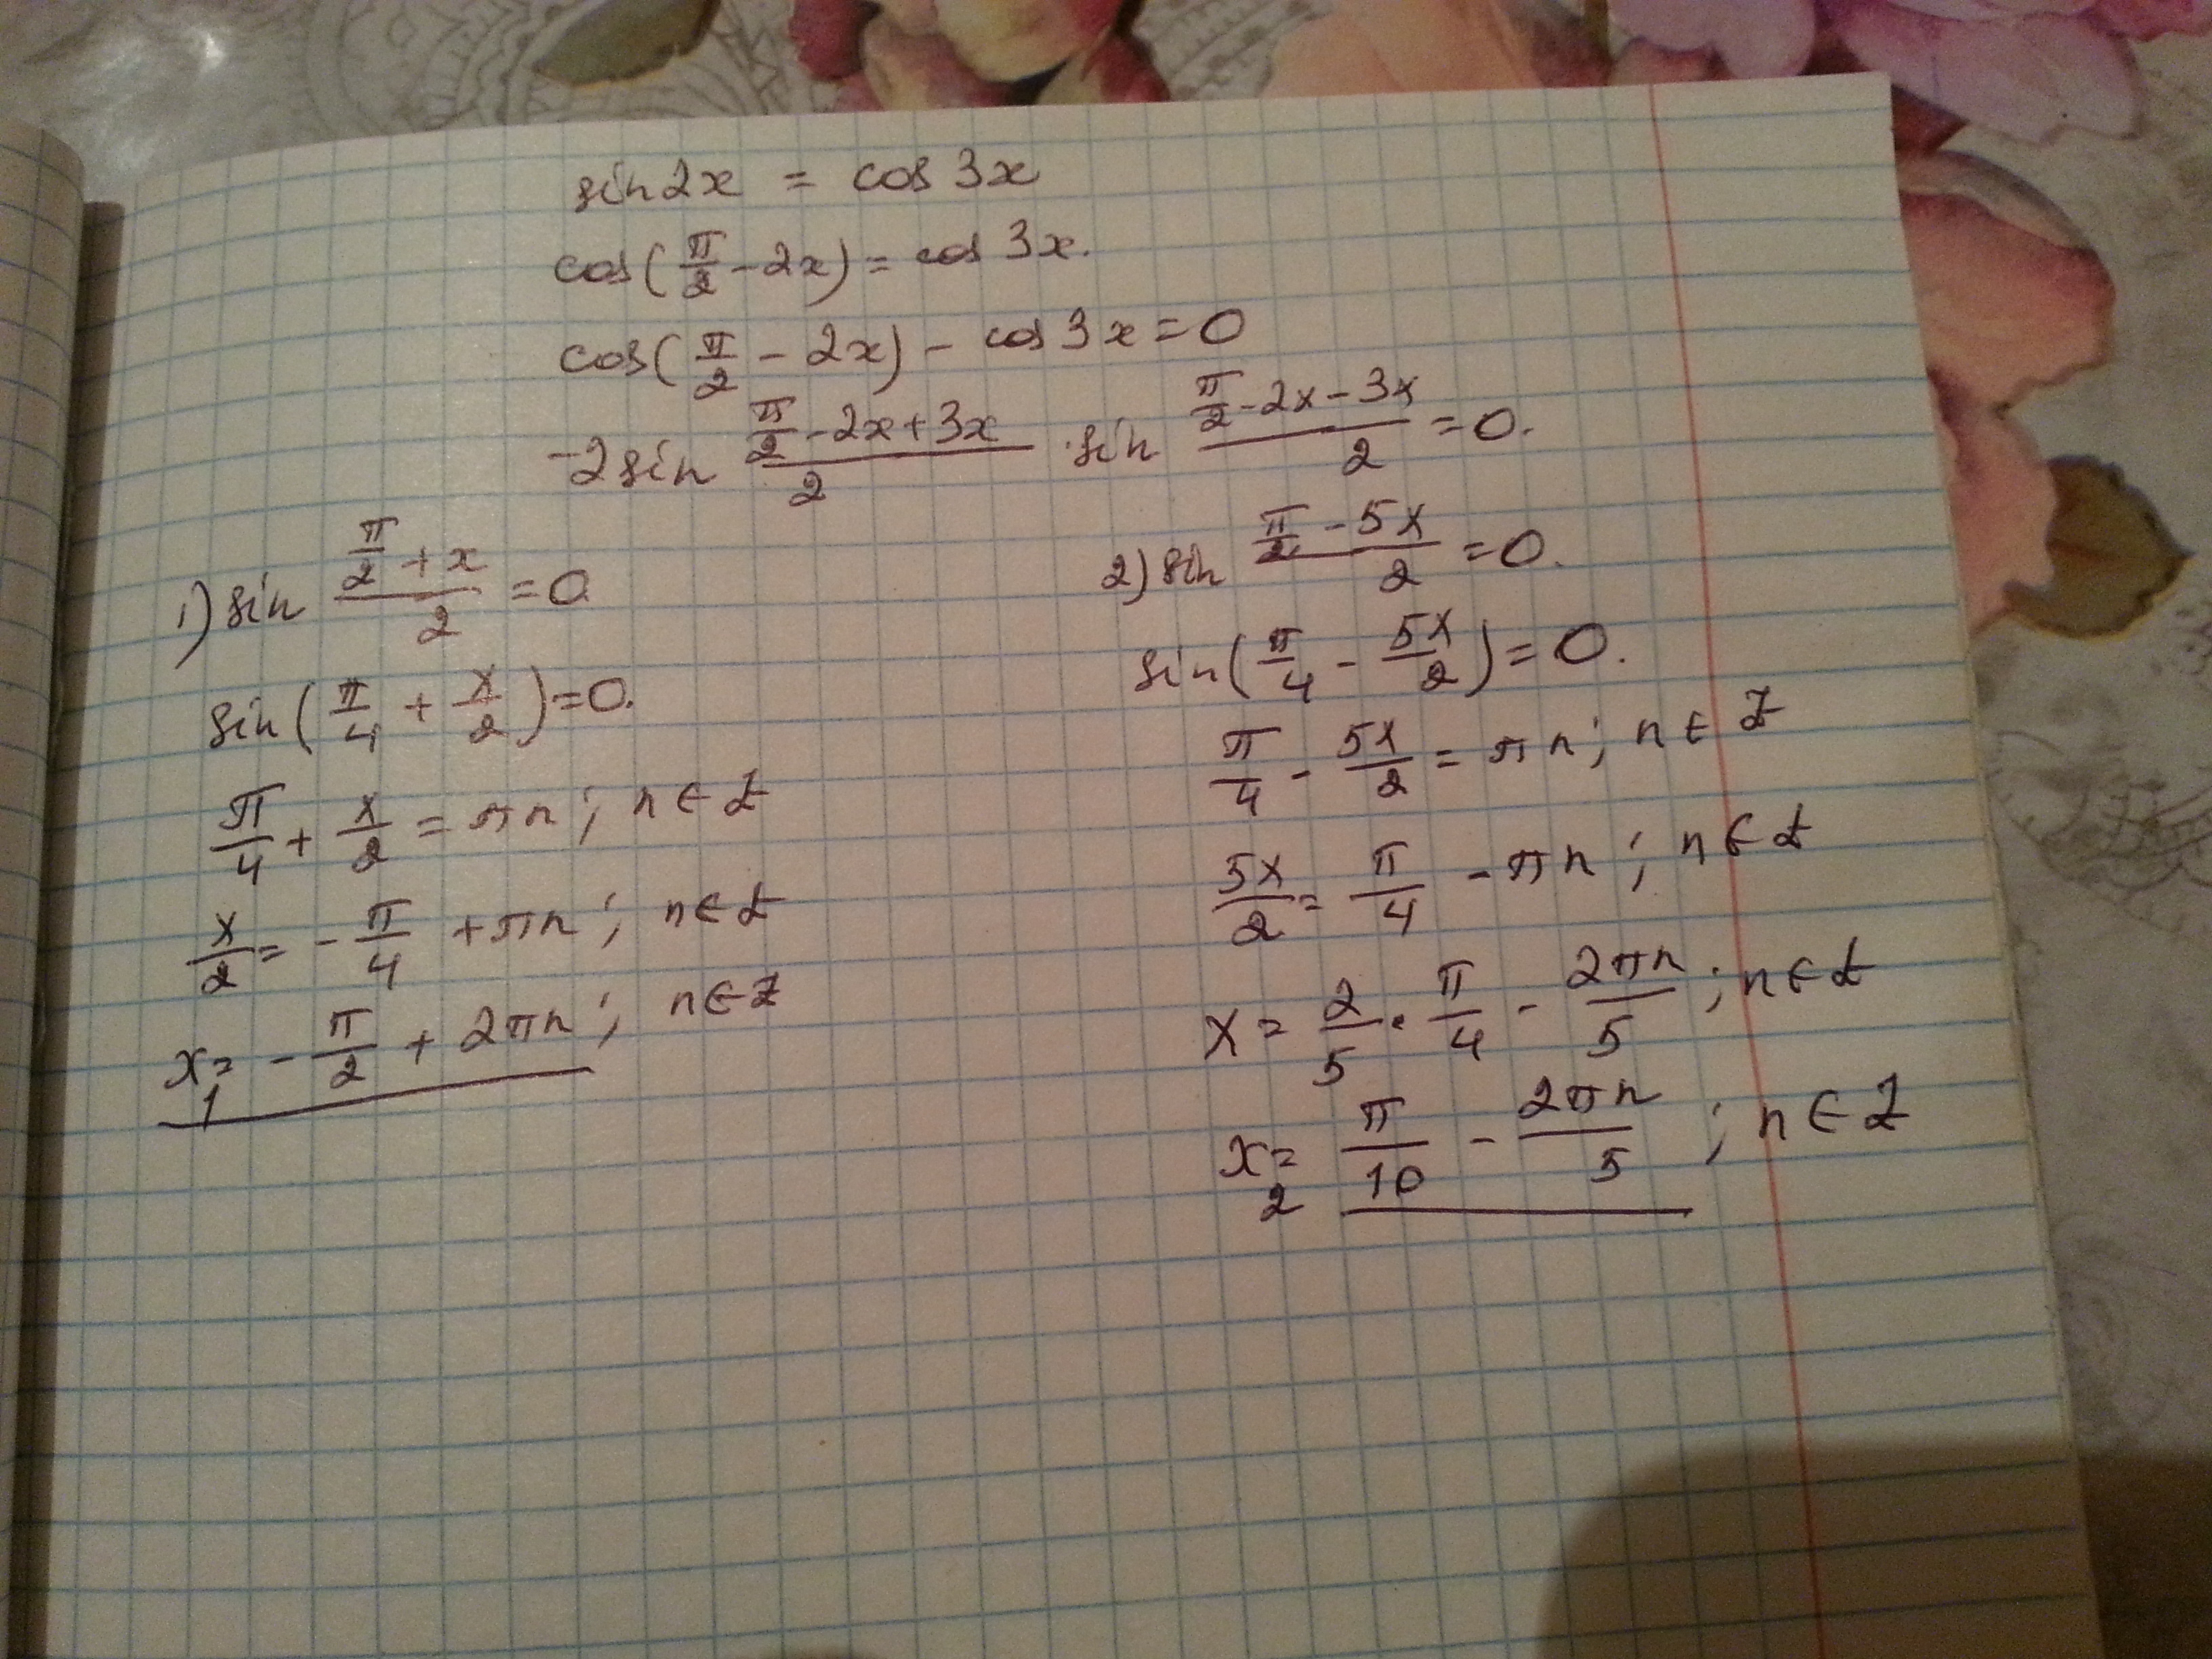 sin2x = cos 3x
cos(π/2 - 2x) = cos 3x.
cos(π/2 - 2x) - cos 3x = 0
-2 sin (π/2 - 2x + 3x)/2 · sin (π/2 - 2x - 3x)/2 = 0.
1) sin (π/2 + x)/2 = 0
sin(π/4 + x/2) = 0.
π/4 + x/2 = πn; n ∈ Z
x/2 = - π/4 + πn; n ∈ Z
x₁ = - π/2 + 2πn; n ∈ Z
2) sin (π/2 - 5x)/2 = 0.
sin(π/4 - 5x/2) = 0.
π/4 - 5x/2 = πn; n ∈ Z
5x/2 = π/4 - πn; n ∈ Z
x = 2/5 · π/4 - 2πn/5; n ∈ Z
x₂ = π/10 - 2πn/5; n ∈ Z